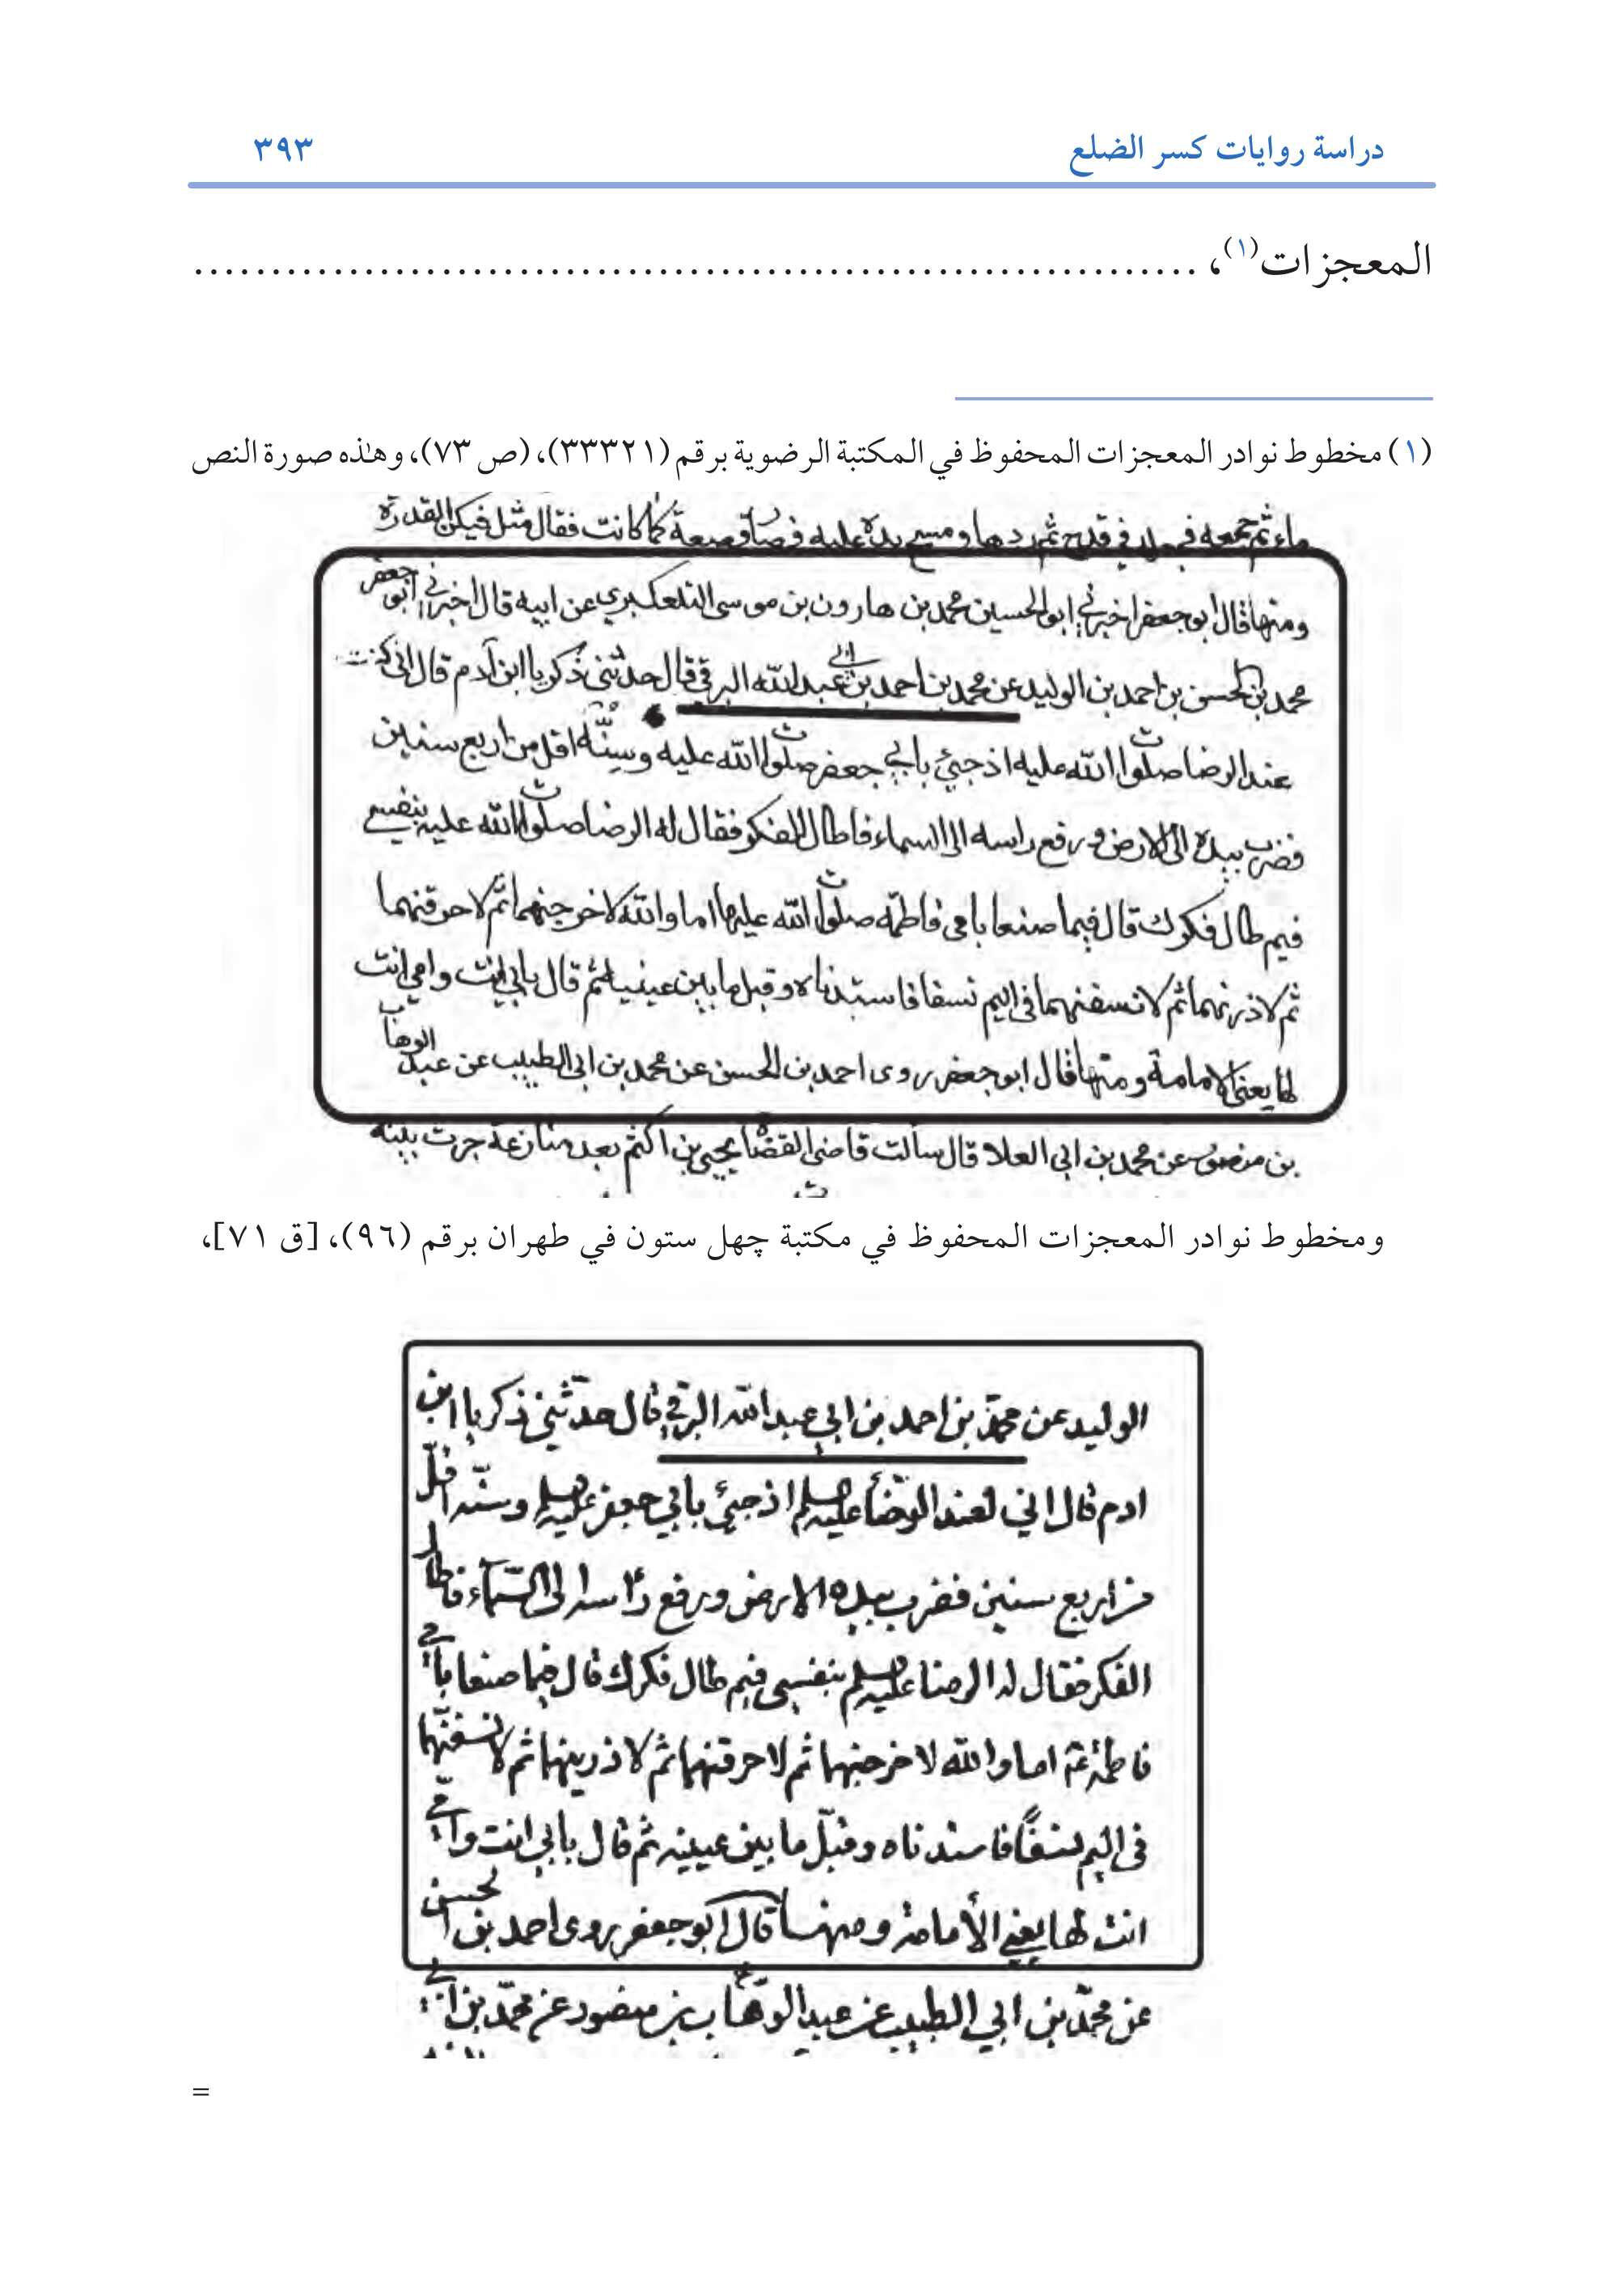 دراسة روايات كسر الضلع ٣٩٣
المعجزات(١)، ................................................................
(١) مخطوط نوادر المعجزات المحفوظ في المكتبة الرضوية برقم (٣٣٣٢١)، (ص ٧٣)، وهذه صورة النص
ماء ثم جمعه في جلد في قدح ثم ردها ومسح يده عليه فصار قصعة كما كانت فقال مثل فيكن القدرة
ومنها قال ابو جعفر اخبرني ابو الحسين محمد بن هارون بن موسى التلعكبري عن ابيه قال اخبرني ابو جعفر
محمد بن الحسن بن احمد بن الوليد عن محمد بن احمد بن ابي عبد الله البرقي قال حدثني ذكريا ابن آدم قال اني كنت
عند الرضا صلوات الله عليه اذ جيئ بابي جعفر صلوات الله عليه وسنّه اقل من اربع سنين
فضرب بيده الى الارض ورفع راسه الى السماء فاطال الفكر فقال له الرضا صلوات الله عليه بنفسي
فيم طال فكرك قال فيما صنعا بامي فاطمة صلوات الله عليها اما والله لاخرجنهما ثم لاحرقنهما
ثم لاذرنهما ثم لانسفنهما في اليم نسفا فاستدناه وقبل ما بين عينيه ثم قال بابي انت وامي انت
لها يعني الامامة ومنها قال ابو جعفر روى احمد بن الحسن عن محمد بن ابي الطيب عن عبد الوهاب
بن منصور عن محمد بن ابي العلا قال سألت قاضي القضا يحيى بن اكثم بعد منازعة جرت بينه
ومخطوط نوادر المعجزات المحفوظ في مكتبة چهل ستون في طهران برقم (٩٦)، [ق ٧١]،
الوليد عن محمّد بن احمد بن ابي عبد الله البرقي قال حدّثني ذكريا ابن
ادم قال اني لعند الرضا عليه السلم اذ جيئ بابي جعفر عليه السلم وسنّه اقلّ
من اربع سنين فضرب بيده الارض ورفع رأسه الى السّمآء فاطال
الفكر فقال له الرضا عليه السلم بنفسي فيم طال فكرك قال فيما صنعا بامي
فاطمة ع اما والله لاخرجنهما ثم لاحرقنهما ثم لاذرينهما ثم لانسفنّهما
في اليم نسفًا فاستدناه وقبّل ما بين عينيه ثم قال بابي انت وامّي
انت لها يعني الأمامة ومنها قال ابو جعفر روى احمد بن الحسن
عن محمّد بن ابي الطيب عن عبد الوهّاب بن منصور عن محمّد بن ابي
=